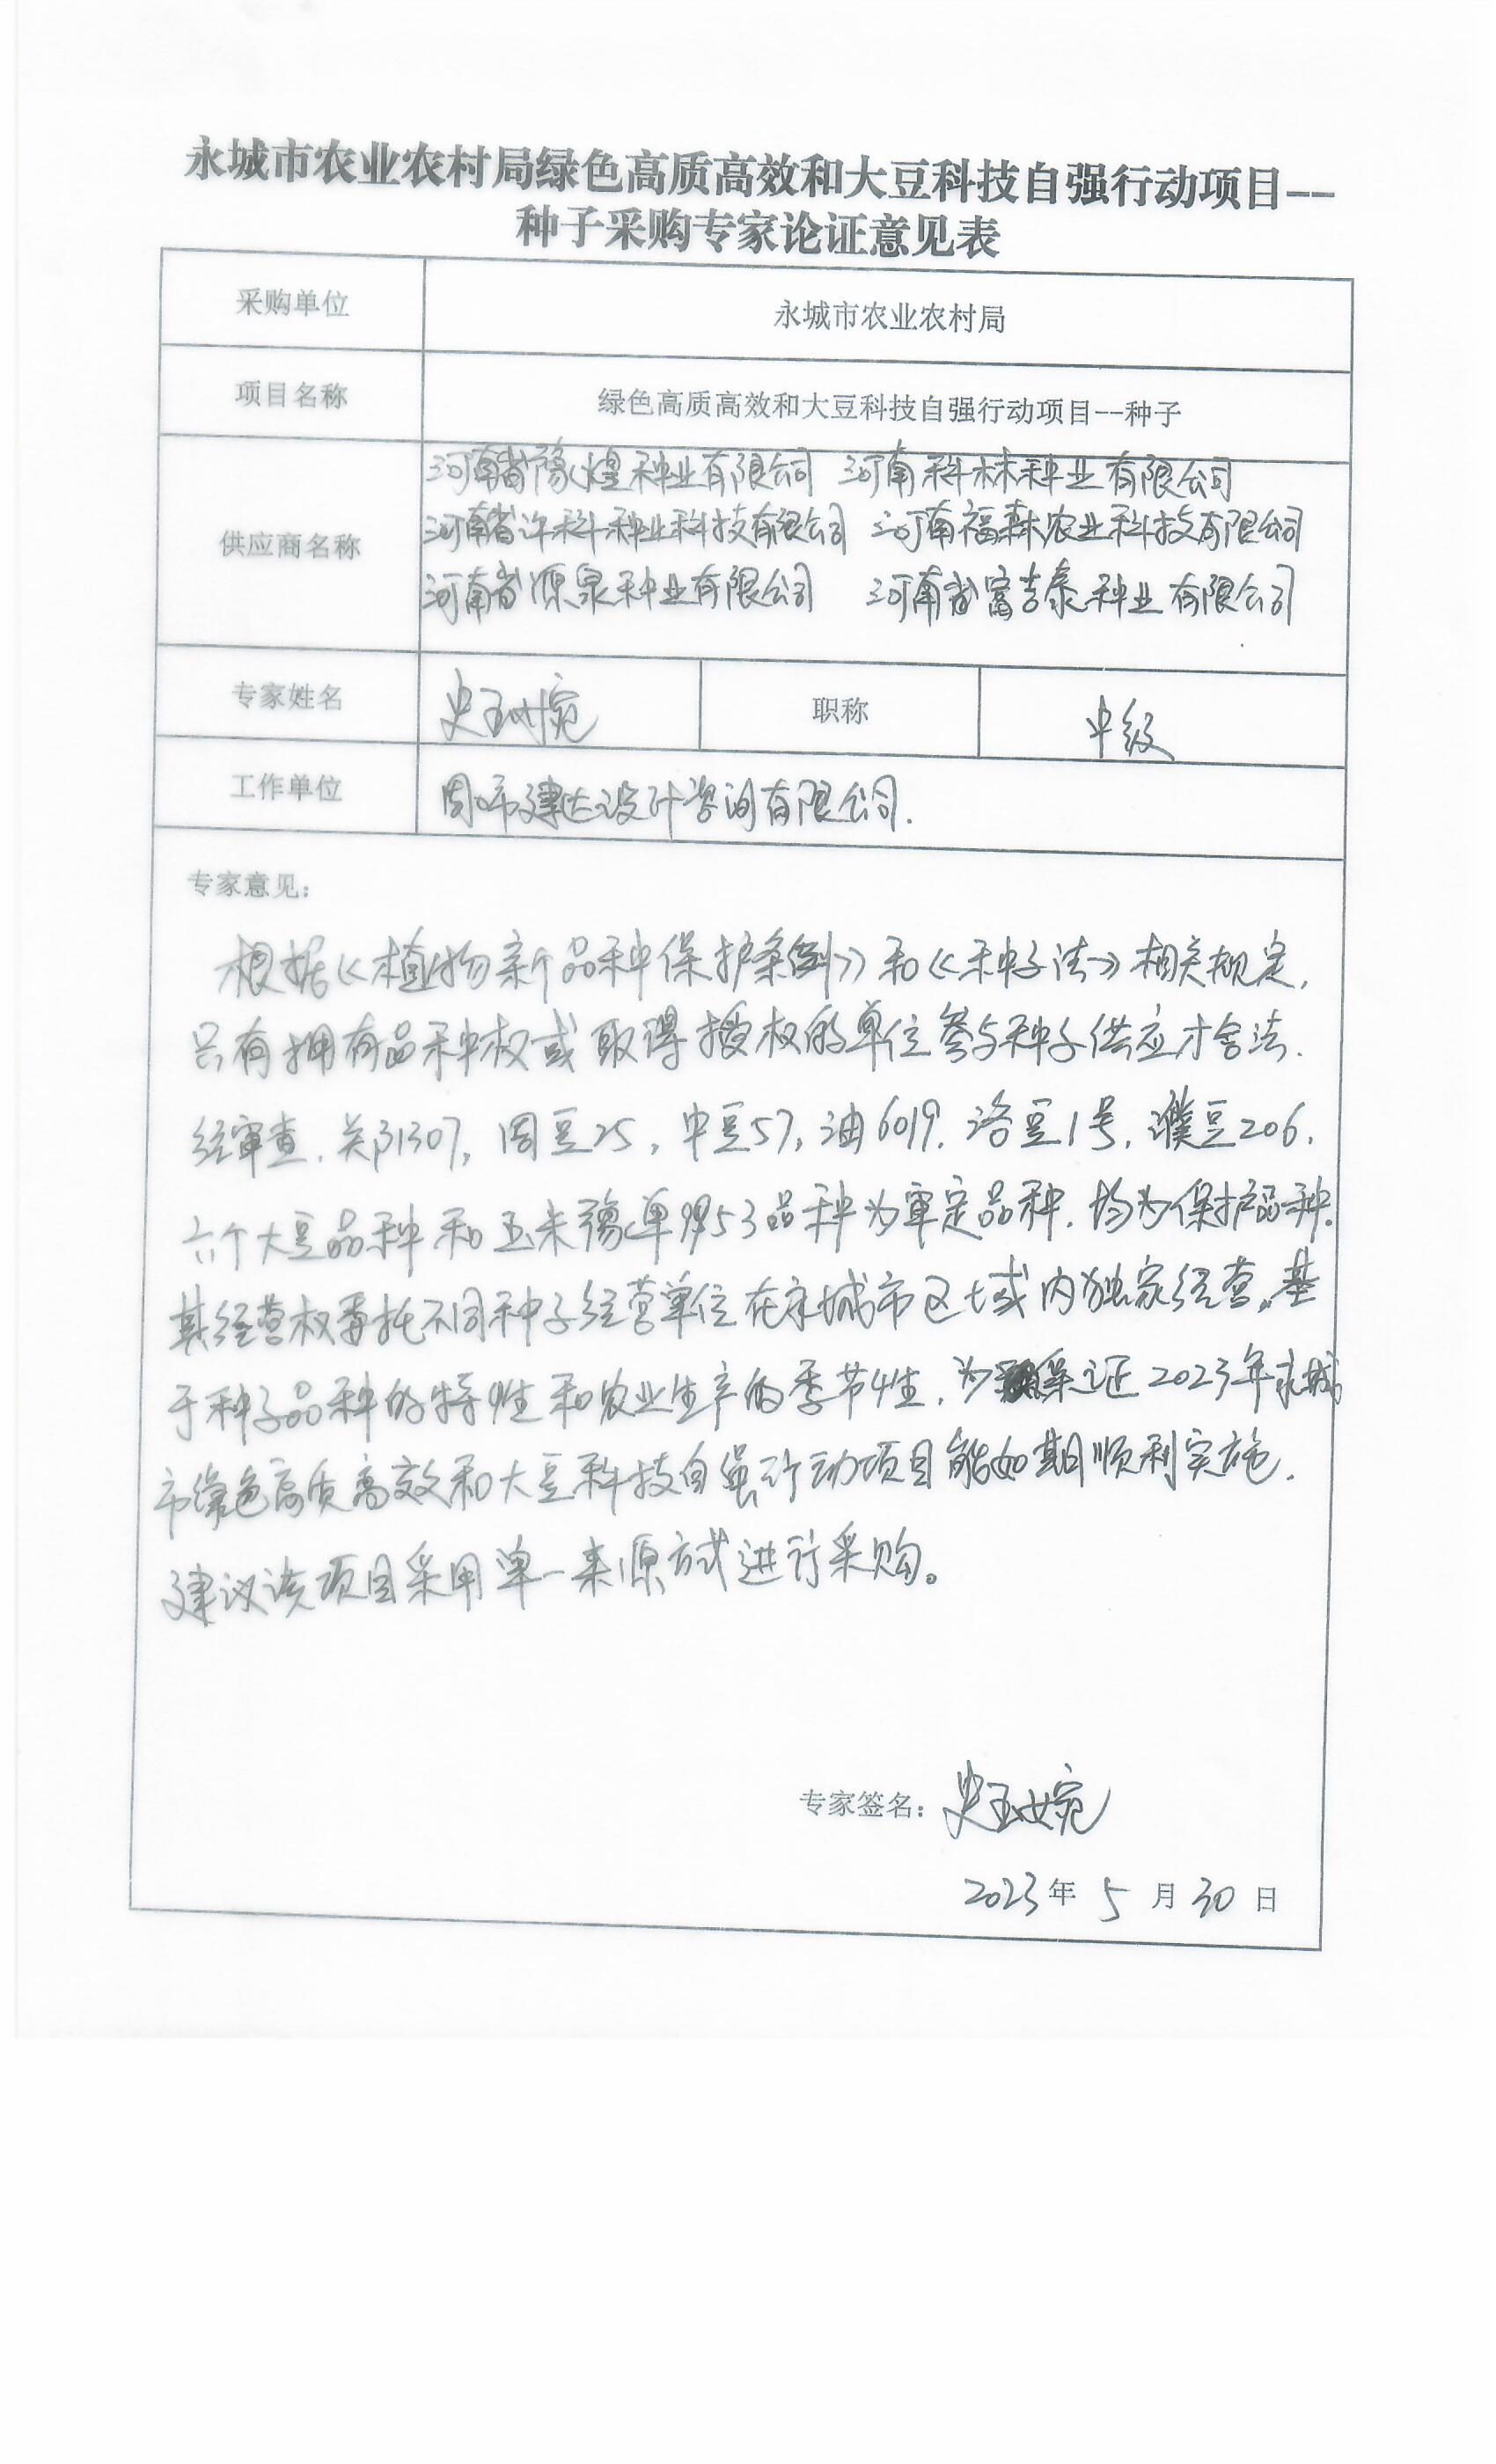 永城市农业农村局绿色高质高效和大豆科技自强行动项目--
种子采购专家论证意见表
采购单位 永城市农业农村局
项目名称 绿色高质高效和大豆科技自强行动项目--种子
河南省豫煌种业有限公司 河南科林种业有限公司
供应商名称 河南省许科种业科技有限公司 河南福森农业科技有限公司
河南省源泉种业有限公司 河南省富吉泰种业有限公司
专家姓名 史玉婉 职称 中级
工作单位 周口市建达设计咨询有限公司.
专家意见：
根据《植物新品种保护条例》和《种子法》相关规定,
只有拥有品种权或取得授权的单位参与种子供应才合法.
经审查.郑1307,周豆25,中豆57,油6019.洛豆1号,濮豆206.
六个大豆品种和玉米豫单9953品种为审定品种.均为保护品种.
其经营权委托不同种子经营单位在永城市区域内独家经营。基
于种子品种的特性和农业生产的季节性.为保证2023年永城
市绿色高质高效和大豆科技自强行动项目能如期顺利实施.
建议该项目采用单一来源方式进行采购。
专家签名：史玉婉
2023年 5 月 30 日